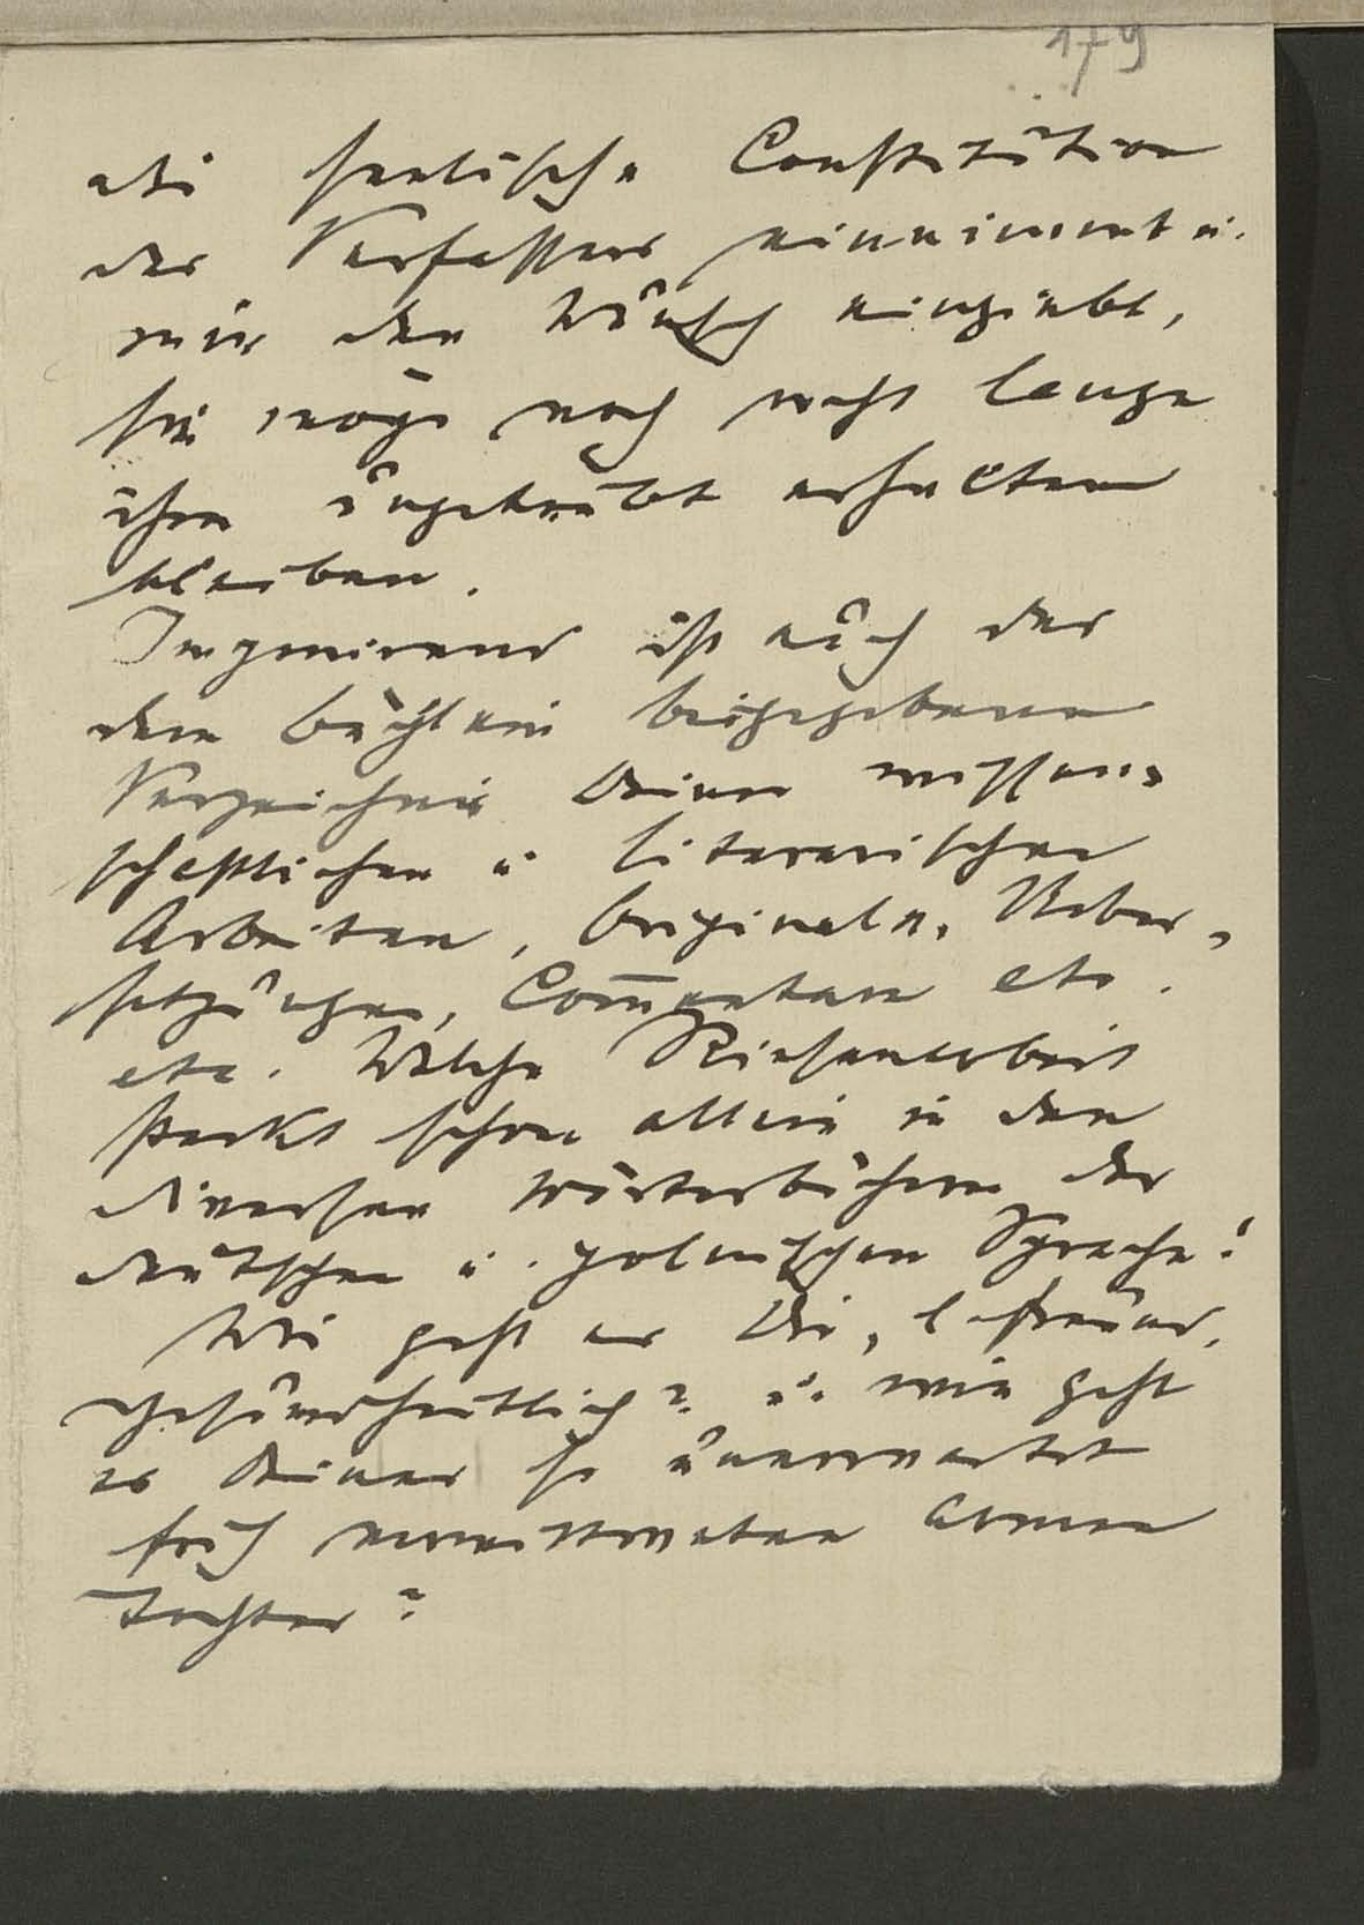 179
die seelische Constitution
des Verfassers einnimmt u.
mir den Wunsch eingiebt,
sie möge noch recht lange
ihm ungetrübt erhalten
bleiben.
Imponirend ist auch das
dem Büchlein beigegebene
Verzeichnis Deiner wissen-
schaftlichen u literarischen
Arbeiten, Originale, Ueber-
setzungen, Commentare etc.
etc. Welche Riesenarbeit
steckt schon allein in den
diversen Wörterbüchern der
deutschen u. polnischen Sprache!
Wie geht es Dir, l. Freund,
gesundheitlich? u. wie geht
es Deiner so unerwartet
früh verwittweten armen
Tochter?